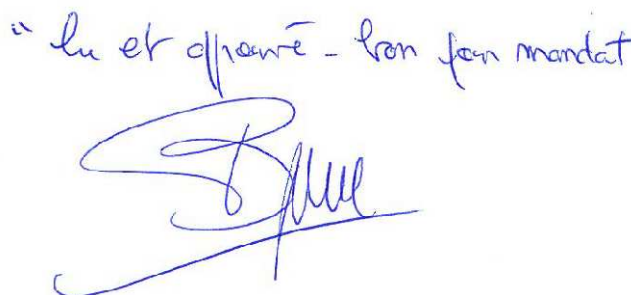 " lu et approuvé - bon pour mandat